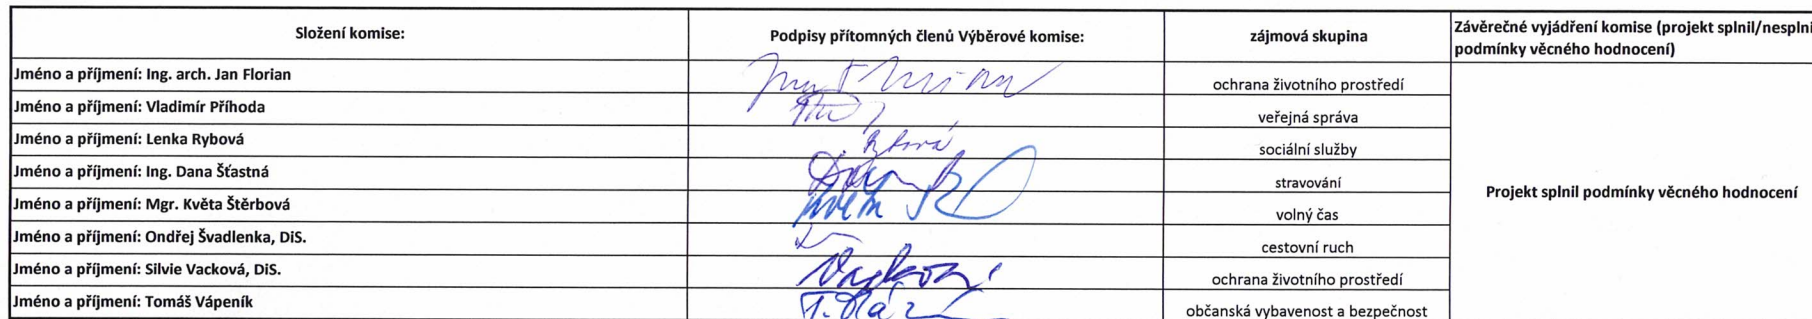 Složení komise: Podpisy přítomných členů Výběrové komise: zájmová skupina Závěrečné vyjádření komise (projekt splnil/nesplnil
podmínky věcného hodnocení)
Jméno a příjmení: Ing. arch. Jan Florian ochrana životního prostředí
Jméno a příjmení: Vladimír Příhoda veřejná správa
Jméno a příjmení: Lenka Rybová Rybová sociální služby
Jméno a příjmení: Ing. Dana Šťastná stravování
Jméno a příjmení: Mgr. Květa Štěrbová volný čas
Projekt splnil podmínky věcného hodnocení
Jméno a příjmení: Ondřej Švadlenka, DiS. cestovní ruch
Jméno a příjmení: Silvie Vacková, DiS. Vacková ochrana životního prostředí
Jméno a příjmení: Tomáš Vápeník občanská vybavenost a bezpečnost